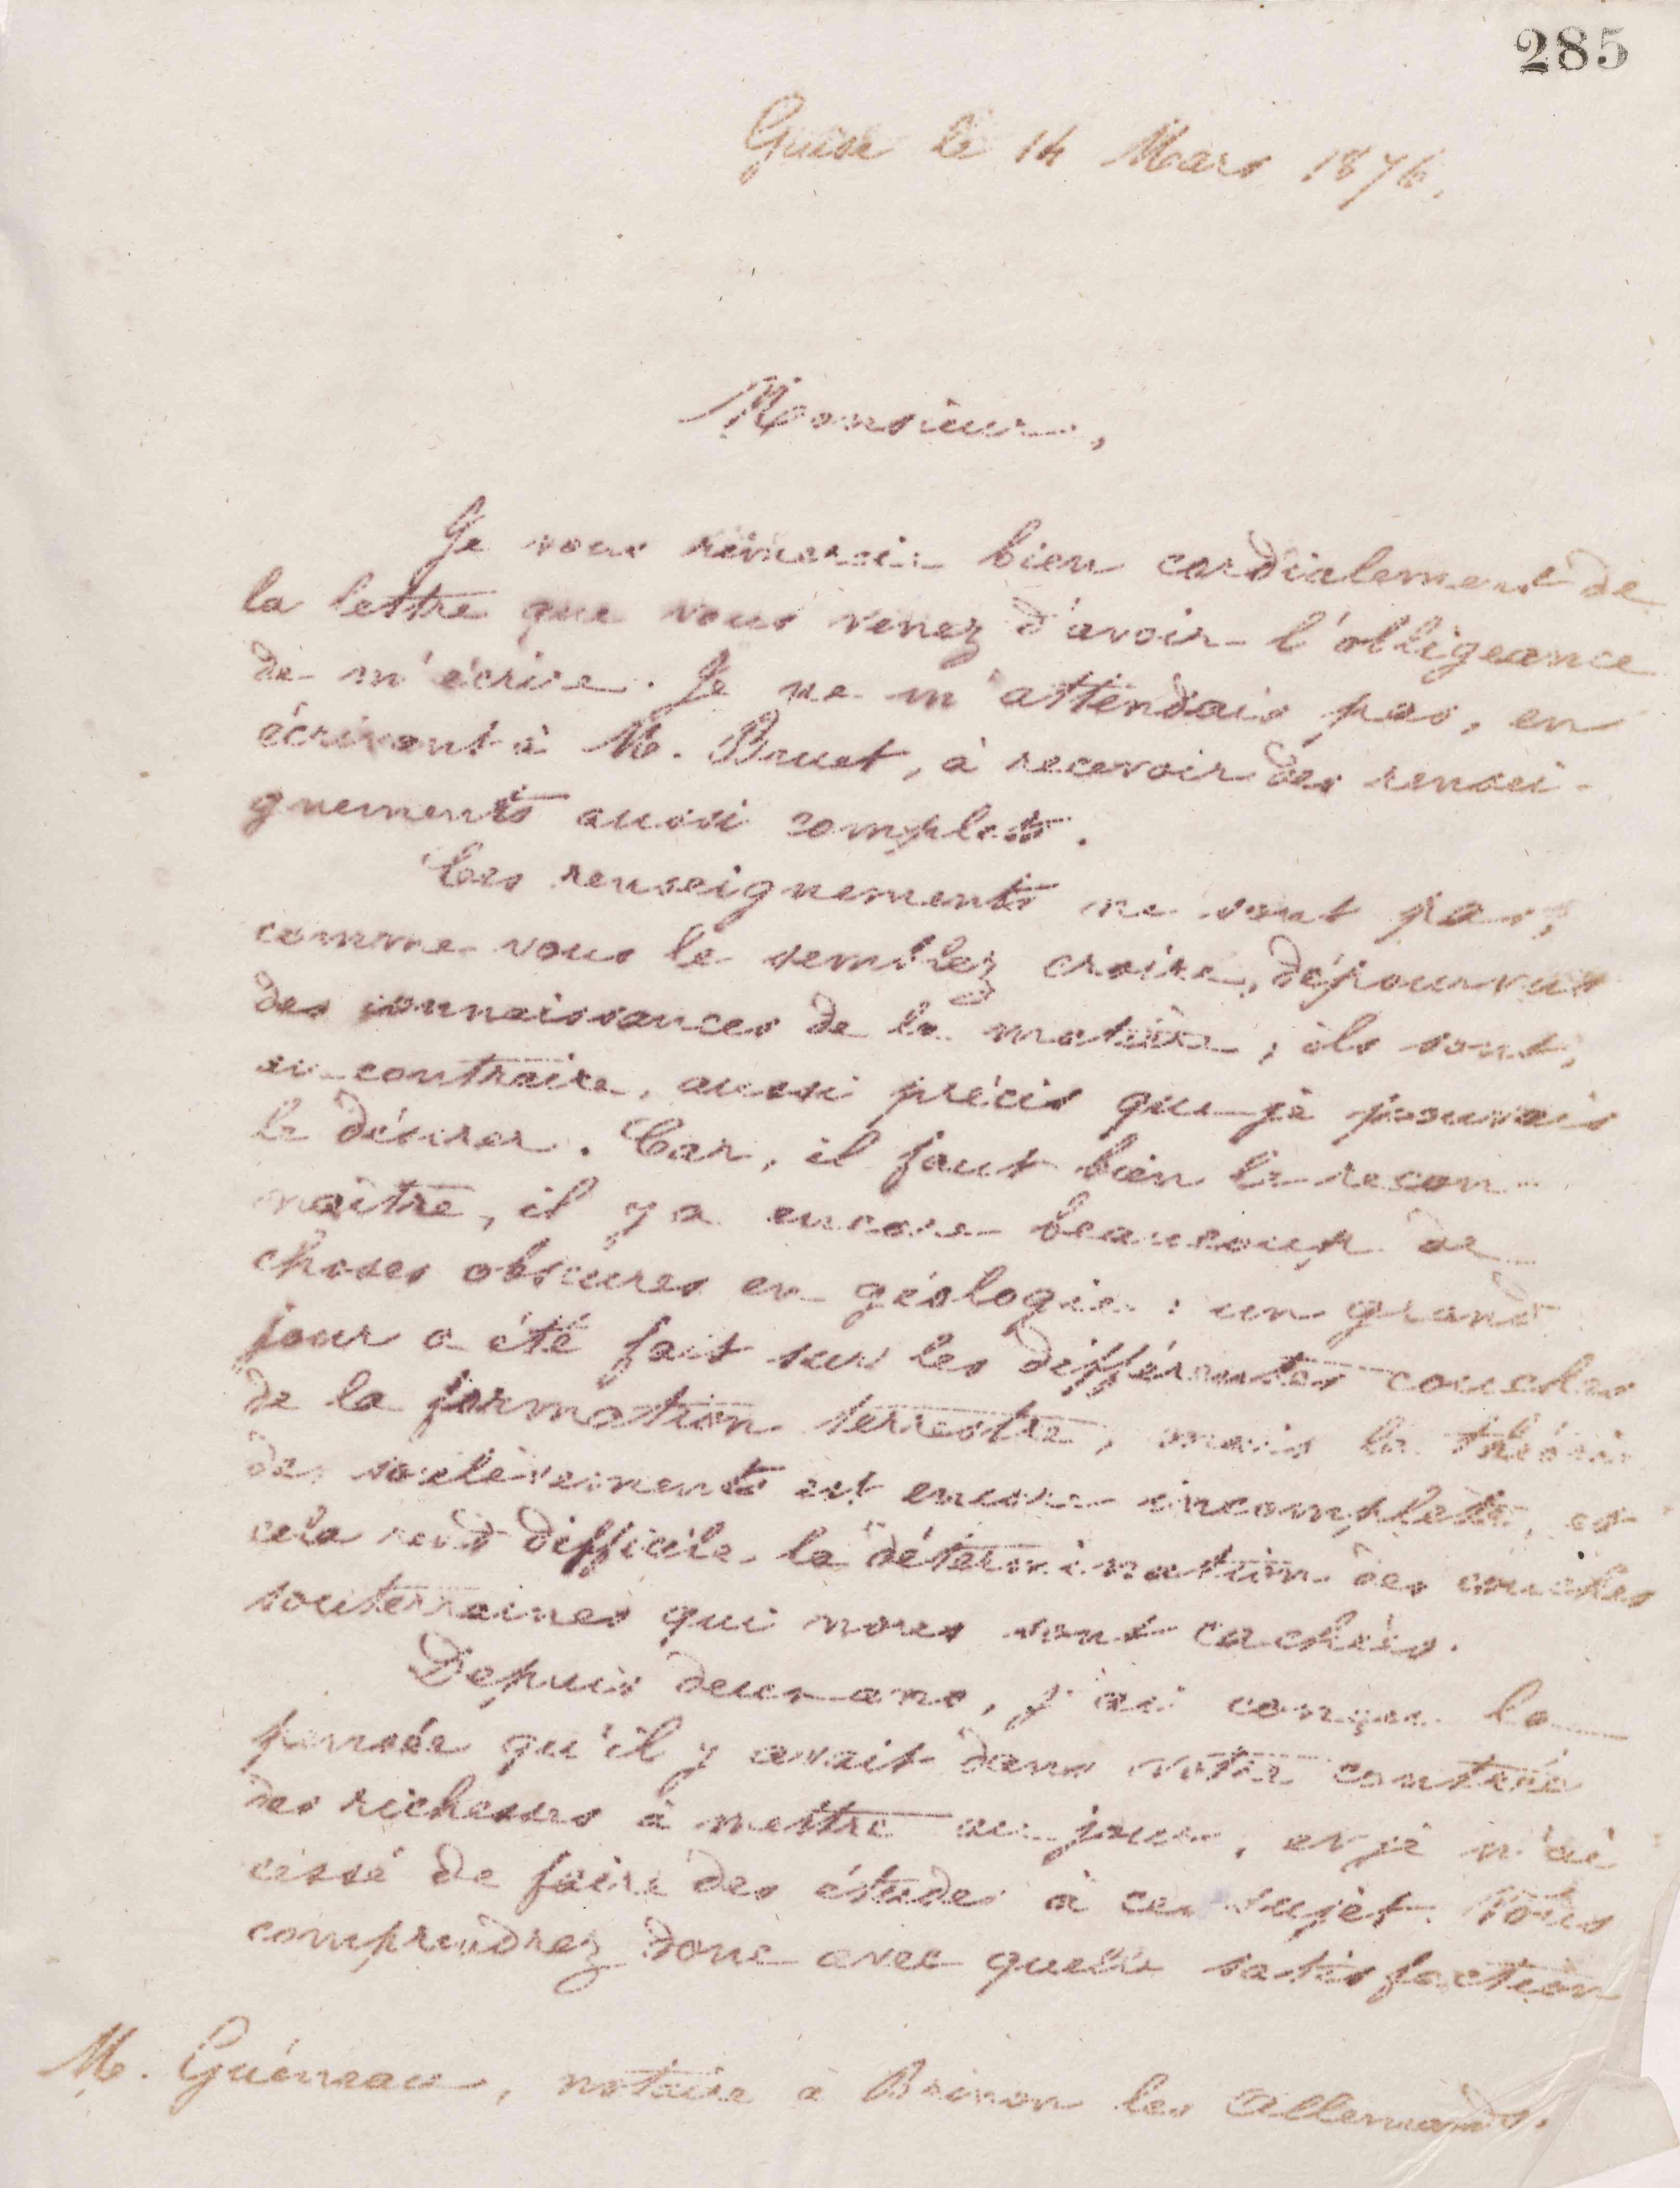 285
Guise le 14 Mars 1876.
Monsieur,
Je vous remercie bien cordialement de
la lettre que vous venez d'avoir l'obligeance
de m'écrire. Je ne m'attendais pas, en
écrivant à M. Bruet, à recevoir des rensei-
gnements aussi complets.
Ces renseignements ne sont pas,
comme vous le semblez croire, dépourvus
des connaissances de la matière ; ils sont,
au contraire, aussi précis que je pouvais
le désirer. Car, il faut bien le recon-
naître, il y a encore beaucoup de
choses obscures en géologie : un grand
jour a été fait sur les différentes couches
de la formation terrestre, mais la théorie
des soulèvements est encore incomplète, et
cela rend difficile la détermination des couches
souterraines qui nous sont cachées.
Depuis deux ans, j'ai conçu la
pensée qu'il y avait dans votre contrée
des richesses à mettre au jour, et je n'ai
cessé de faire des études à ce sujet. Vous
comprendrez donc avec quelle satisfaction
M. Guéneau, notaire à Brinon les Allemands.